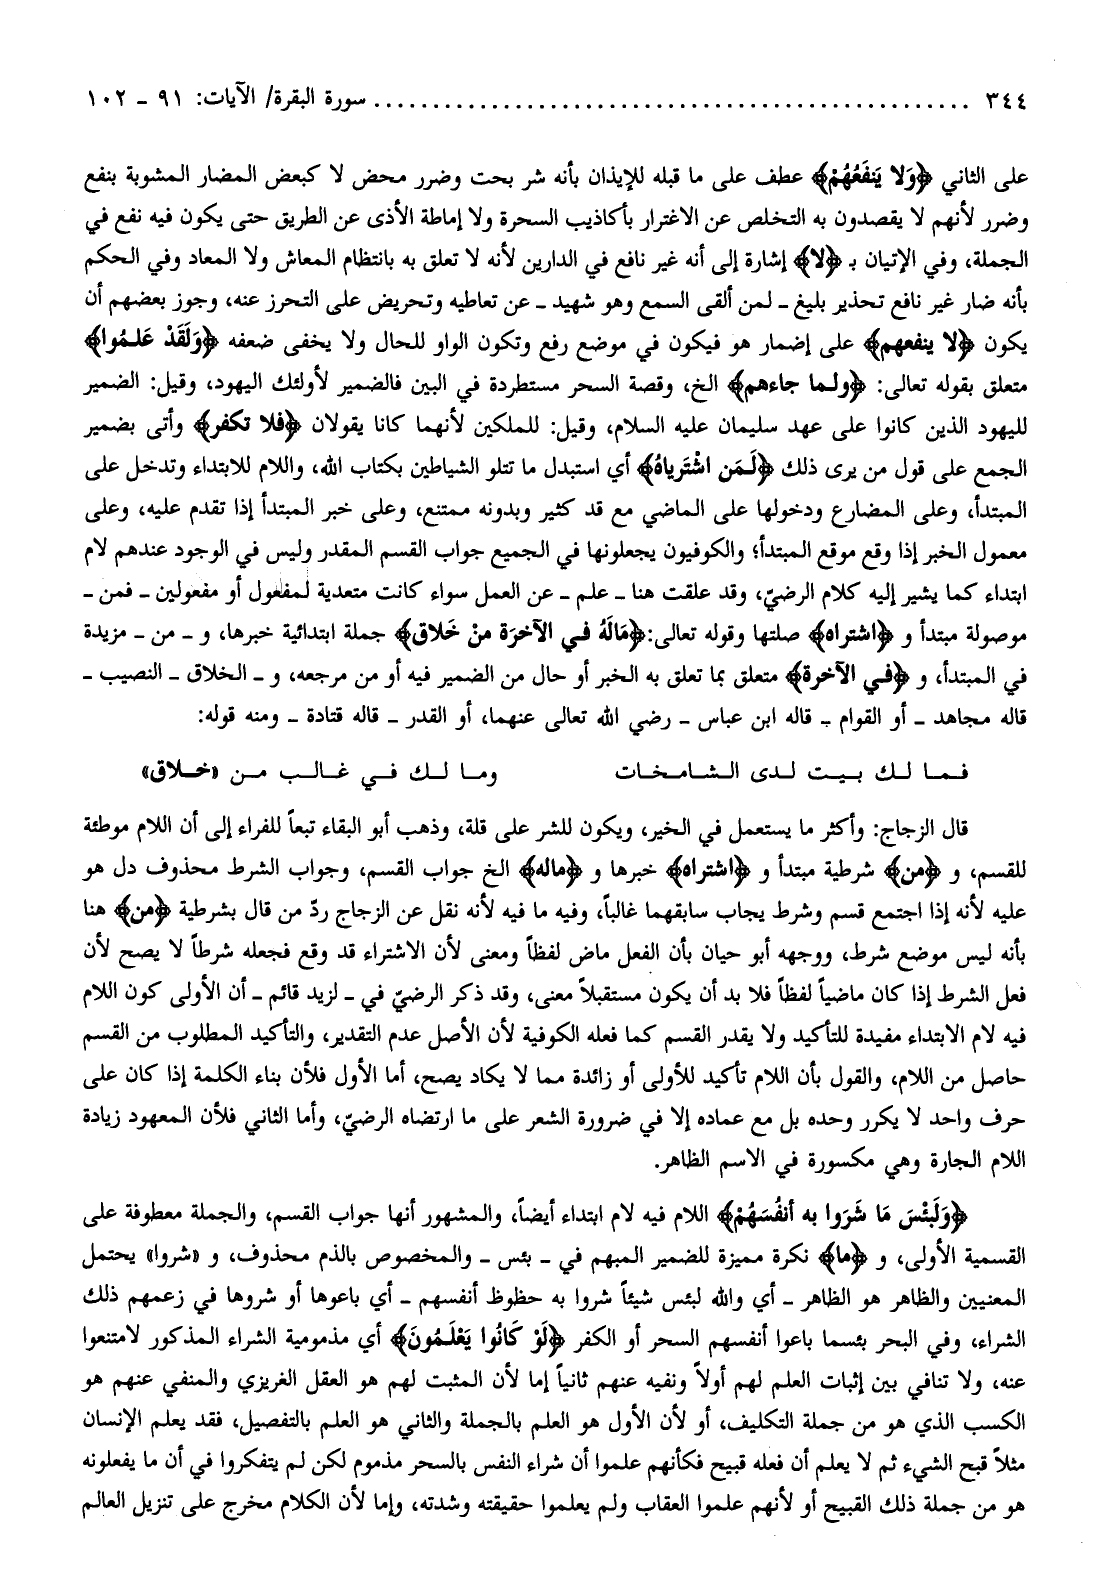 ٣٤٤ .................................................. سورة البقرة/ الآيات: ٩١ ـ ١٠٢
على الثاني ﴿وَلا يَنفَعُهُمْ﴾ عطف على ما قبله للإيذان بأنه شر بحت وضرر محض لا كبعض المضار المشوبة بنفع
وضرر لأنهم لا يقصدون به التخلص عن الاغترار بأكاذيب السحرة ولا إماطة الأذى عن الطريق حتى يكون فيه نفع في
الجملة، وفي الإتيان بـ ﴿لا﴾ إشارة إلى أنه غير نافع في الدارين لأنه لا تعلق به بانتظام المعاش ولا المعاد وفي الحكم
بأنه ضار غير نافع تحذير بليغ ـ لمن ألقى السمع وهو شهيد ـ عن تعاطيه وتحريض على التحرز عنه، وجوز بعضهم أن
يكون ﴿لا ينفعهم﴾ على إضمار هو فيكون في موضع رفع وتكون الواو للحال ولا يخفى ضعفه ﴿وَلَقَدْ عَلـمُوا﴾
متعلق بقوله تعالى: ﴿ولـما جاءهم﴾ الخ، وقصة السحر مستطردة في البين فالضمير لأولئك اليهود، وقيل: الضمير
لليهود الذين كانوا على عهد سليمان عليه السلام، وقيل: للملكين لأنهما كانا يقولان ﴿فلا تكفر﴾ وأتى بضمير
الجمع على قول من يرى ذلك ﴿لَـمَن اشْتَرياهُ﴾ أي استبدل ما تتلو الشياطين بكتاب الله، واللام للابتداء وتدخل على
المبتدأ، وعلى المضارع ودخولها على الماضي مع قد كثير وبدونه ممتنع، وعلى خبر المبتدأ إذا تقدم عليه، وعلى
معمول الخبر إذا وقع موقع المبتدأ؛ والكوفيون يجعلونها في الجميع جواب القسم المقدر وليس في الوجود عندهم لام
ابتداء كما يشير إليه كلام الرضيّ، وقد علقت هنا ـ علم ـ عن العمل سواء كانت متعدية لمفعول أو مفعولين ـ فمن ـ
موصولة مبتدأ و ﴿اشتراه﴾ صلتها وقوله تعالى:﴿مَالَهُ فـي الآخرَة منْ خَلاق﴾ جملة ابتدائية خبرها، و ـ من ـ مزيدة
في المبتدأ، و ﴿فـي الآخرة﴾ متعلق بما تعلق به الخبر أو حال من الضمير فيه أو من مرجعه، و ـ الخلاق ـ النصيب ـ
قاله مجاهد ـ أو القوام ـ قاله ابن عباس ـ رضي الله تعالى عنهما، أو القدر ـ قاله قتادة ـ ومنه قوله:
فـمـا لـك بـيـت لـدى الـشـامـخـات وما لـك فـي غـالـب مـن «خـلاق»
قال الزجاج: وأكثر ما يستعمل في الخير، ويكون للشر على قلة، وذهب أبو البقاء تبعاً للفراء إلى أن اللام موطئة
للقسم، و ﴿من﴾ شرطية مبتدأ و ﴿اشتراه﴾ خبرها و ﴿ماله﴾ الخ جواب القسم، وجواب الشرط محذوف دل هو
عليه لأنه إذا اجتمع قسم وشرط يجاب سابقهما غالباً، وفيه ما فيه لأنه نقل عن الزجاج ردّ من قال بشرطية ﴿من﴾ هنا
بأنه ليس موضع شرط، ووجهه أبو حيان بأن الفعل ماض لفظاً ومعنى لأن الاشتراء قد وقع فجعله شرطاً لا يصح لأن
فعل الشرط إذا كان ماضياً لفظاً فلا بد أن يكون مستقبلاً معنى، وقد ذكر الرضيّ في ـ لزيد قائم ـ أن الأولى كون اللام
فيه لام الابتداء مفيدة للتأكيد ولا يقدر القسم كما فعله الكوفية لأن الأصل عدم التقدير، والتأكيد المطلوب من القسم
حاصل من اللام، والقول بأن اللام تأكيد للأولى أو زائدة مما لا يكاد يصح، أما الأول فلأن بناء الكلمة إذا كان على
حرف واحد لا يكرر وحده بل مع عماده إلا في ضرورة الشعر على ما ارتضاه الرضيّ، وأما الثاني فلأن المعهود زيادة
اللام الجارة وهي مكسورة في الاسم الظاهر.
﴿وَلَبئْسَ مَا شَرَوا به أنفُسَهُمْ﴾ اللام فيه لام ابتداء أيضاً، والمشهور أنها جواب القسم، والجملة معطوفة على
القسمية الأولى، و ﴿ما﴾ نكرة مميزة للضمير المبهم في ـ بئس ـ والمخصوص بالذم محذوف، و «شروا» يحتمل
المعنيين والظاهر هو الظاهر ـ أي والله لبئس شيئاً شروا به حظوظ أنفسهم ـ أي باعوها أو شروها في زعمهم ذلك
الشراء، وفي البحر بئسما باعوا أنفسهم السحر أو الكفر ﴿لَوْ كَانُوا يَعْلَـمُونَ﴾ أي مذمومية الشراء المذكور لامتنعوا
عنه، ولا تنافي بين إثبات العلم لهم أولاً ونفيه عنهم ثانياً إما لأن المثبت لهم هو العقل الغريزي والمنفي عنهم هو
الكسب الذي هو من جملة التكليف، أو لأن الأول هو العلم بالجملة والثاني هو العلم بالتفصيل، فقد يعلم الإنسان
مثلاً قبح الشيء ثم لا يعلم أن فعله قبيح فكأنهم علموا أن شراء النفس بالسحر مذموم لكن لم يتفكروا في أن ما يفعلونه
هو من جملة ذلك القبيح أو لأنهم علموا العقاب ولم يعلموا حقيقته وشدته، وإما لأن الكلام مخرج على تنزيل العالم